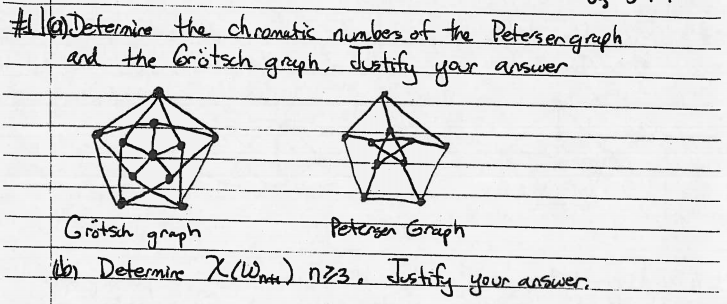 #1 (a) Determine the chromatic numbers of the Petersen graph
and the Grötsch graph. Justify your answer
Grötsch graph Petersen Graph
(b) Determine χ(Wn+1) n≥3. Justify your answer.